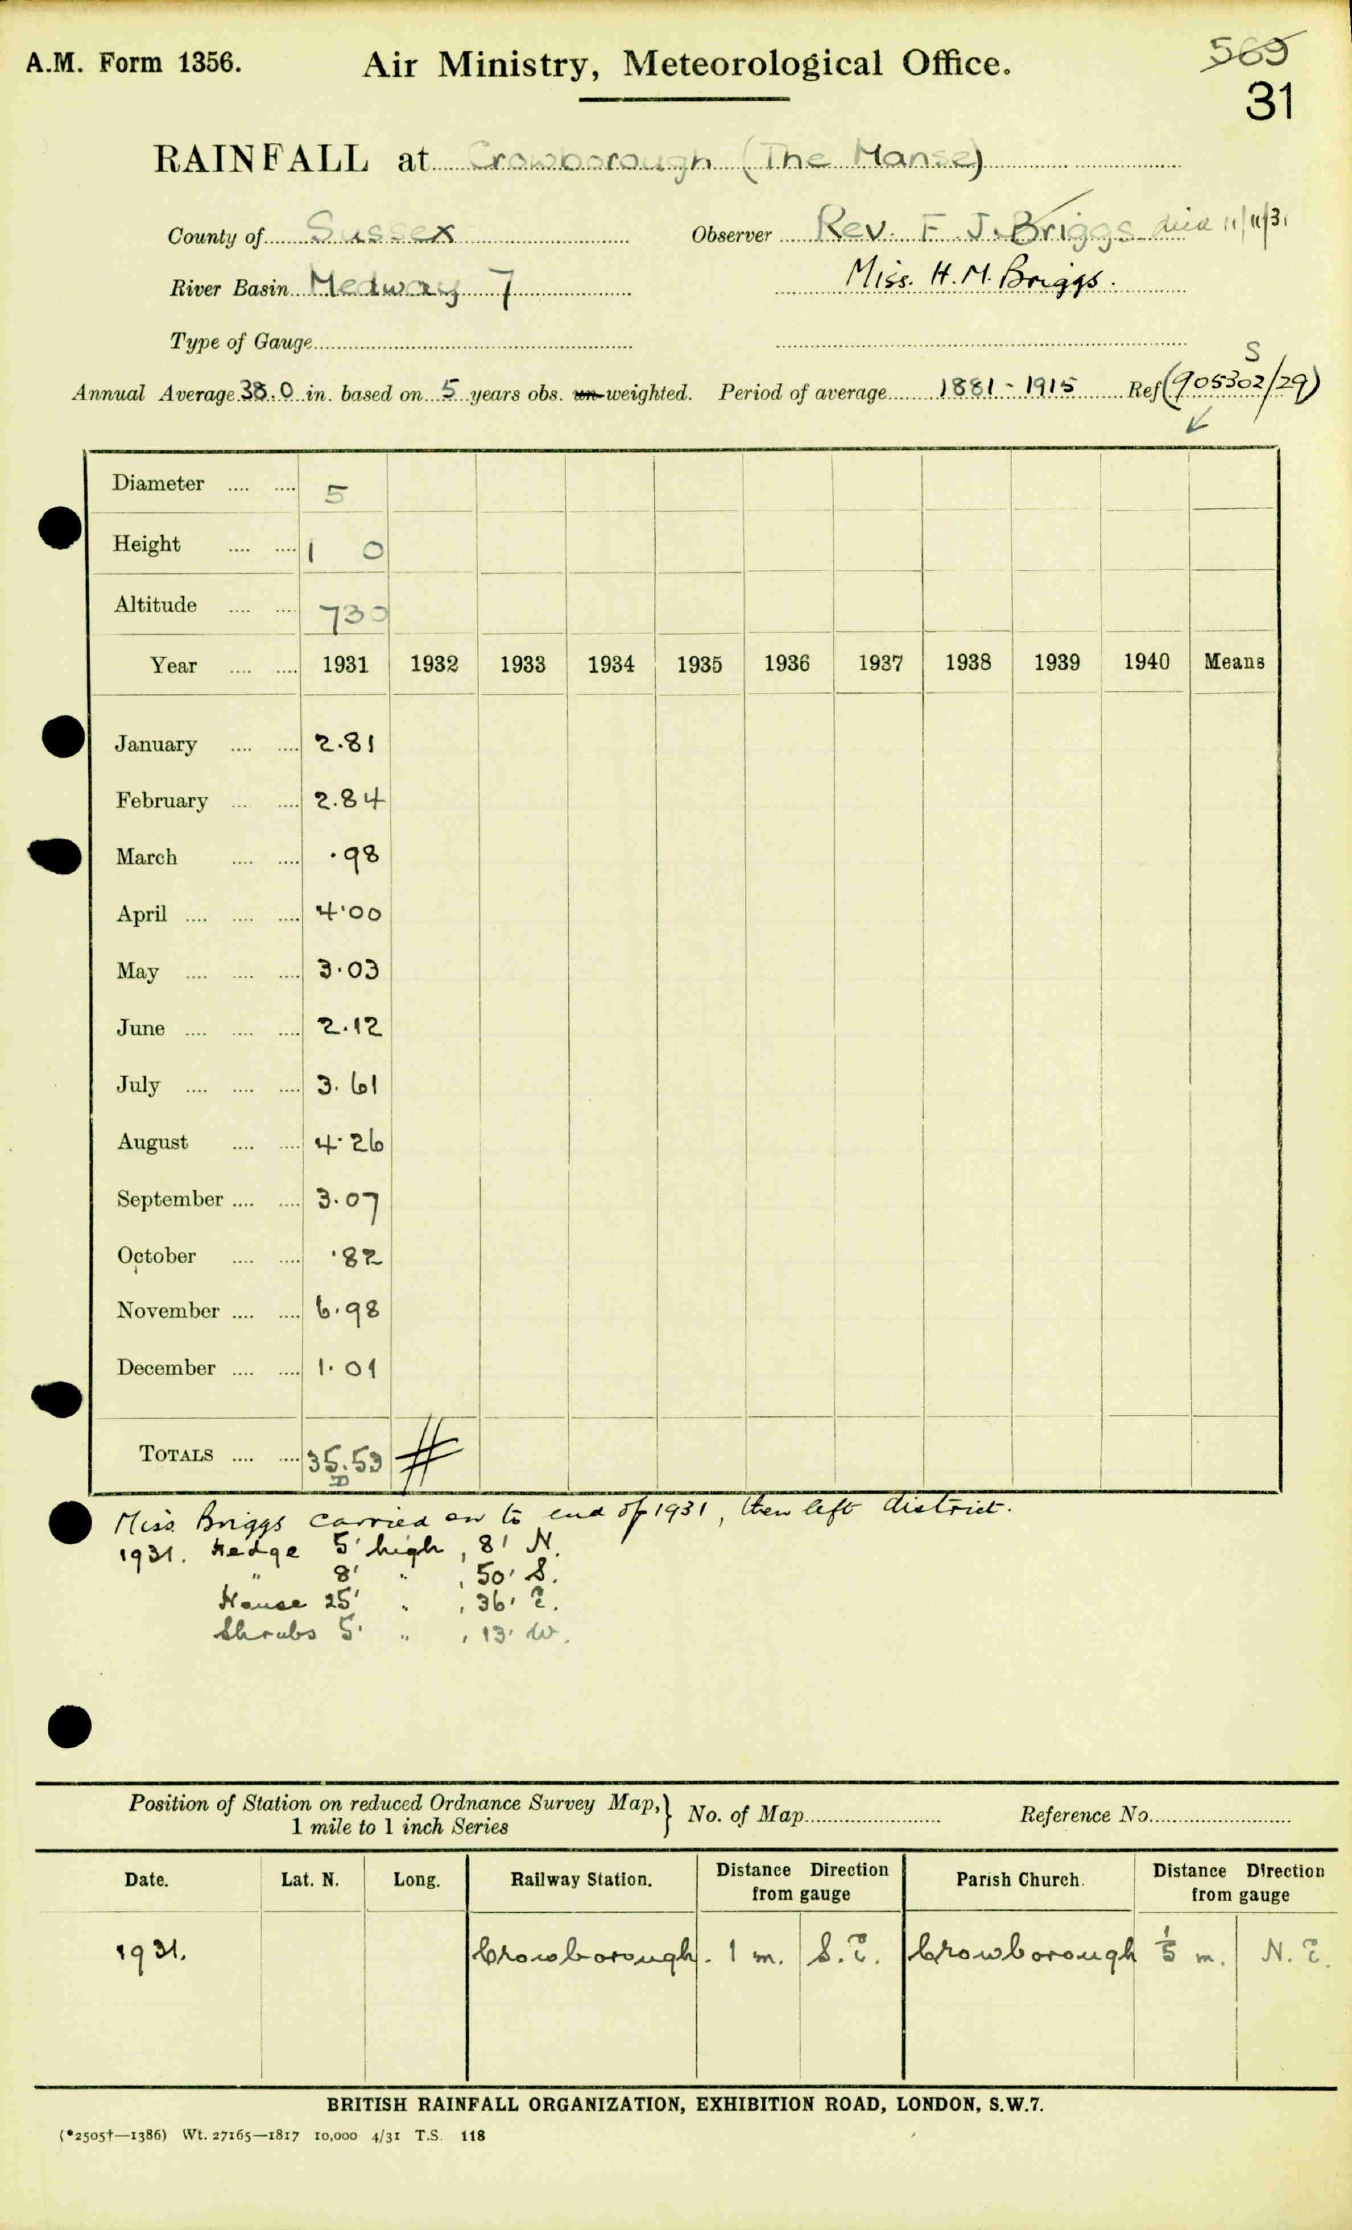 A.M. Form 1356. Air Ministry, Meteorological Office. 569
31
RAINFALL at Crowborough (The Manse)
County of Sussex Observer Rev. F. J. Briggs died 11/11/31
River Basin Medway 7 Miss. H. M. Briggs.
Type of Gauge
Annual Average 38.0 in. based on 5 years obs. un-weighted. Period of average 1881 - 1915 Ref (905302/29) S
Diameter .... .... 5
Height .... .... 1 0
Altitude .... .... 730
Year .... .... 1931 1932 1933 1934 1935 1936 1937 1938 1939 1940 Means
January .... .... 2.81
February .... .... 2.84
March .... .... .98
April .... .... .... 4.00
May .... .... .... 3.03
June .... .... .... 2.12
July .... .... .... 3.61
August .... .... 4.26
September .... .... 3.07
October .... .... .82
November .... .... 6.98
December .... .... 1.01
TOTALS .... .... 35.53 #
D
Miss Briggs carried on to end of 1931, then left district.
1931. Hedge 5' high, 8' N.
" 8' " , 50' S.
House 25' " , 36' E.
Shrubs 5' " , 13' W.
Position of Station on reduced Ordnance Survey Map, } No. of Map Reference No.
1 mile to 1 inch Series
Date. Lat. N. Long. Railway Station. Distance Direction from gauge Parish Church. Distance Direction from gauge
1931. Crowborough. 1 m. S.E. Crowborough 1/5 m. N.E.
BRITISH RAINFALL ORGANIZATION, EXHIBITION ROAD, LONDON, S.W.7.
(*2505†—1386) Wt. 27165—1817 10,000 4/31 T.S. 118